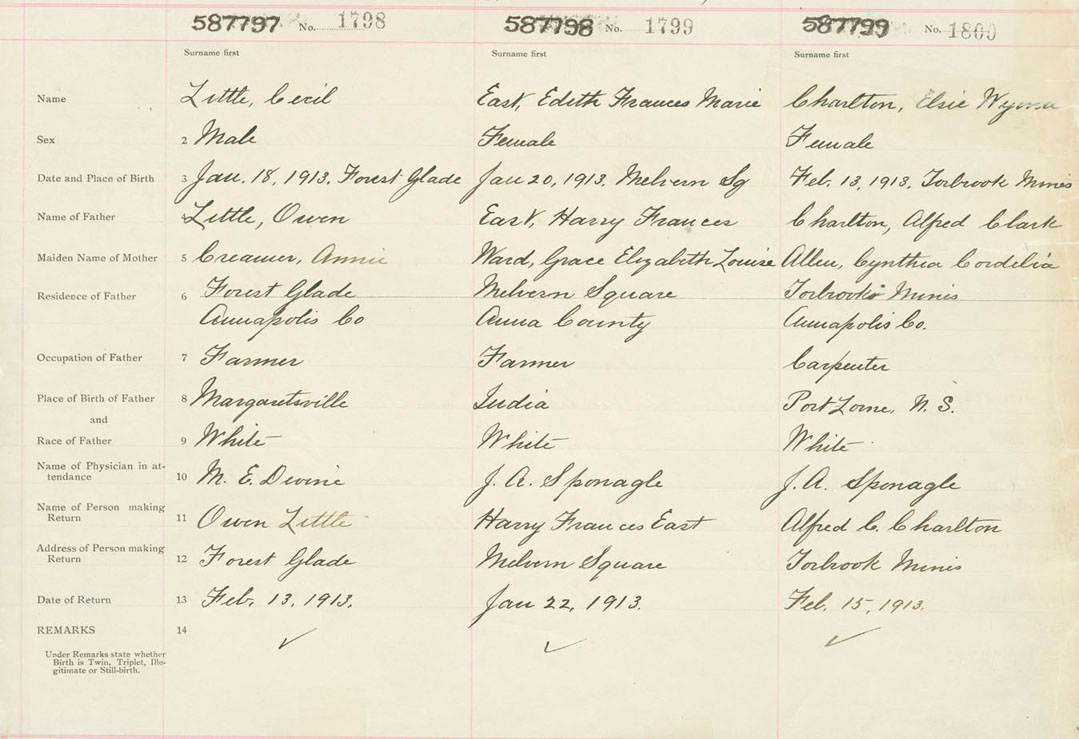 587797 No. 1798 587798 No. 1799 587799 No. 1800
Surname first Surname first Surname first
Name Little, Cecil East, Edith Frances Marie Charlton, Elsie
Sex 2 Male Female Female
Date and Place of Birth 3 Jan. 18, 1913. Forest Glade Jan 20, 1913. Melvern Sq Feb. 13, 1913. Torbrook Mines
Name of Father 4 Little, Owen East, Harry Frances Charlton, Alfred Clark
Maiden Name of Mother 5 Creamer, Annie Ward, Grace Elizabeth Louise Allen, Cynthia Cordelia
Residence of Father 6 Forest Glade Melvern Square Torbrook Mines
Annapolis Co Anna County Annapolis Co.
Occupation of Father 7 Farmer Farmer Carpenter
Place of Birth of Father 8 Margaretsville India Port Lorne, N. S.
and
Race of Father 9 White White White
Name of Physician in at-
tendance 10 M. E. Divine J. A. Sponagle J. A. Sponagle
Name of Person making
Return 11 Owen Little Harry Frances East Alfred C. Charlton
Address of Person making
Return 12 Forest Glade Melvern Square Torbrook Mines
Date of Return 13 Feb. 13. 1913. Jan 22, 1913. Feb. 15, 1913.
REMARKS 14
Under Remarks state whether
Birth is Twin, Triplet, Ille-
gitimate or Still-birth.